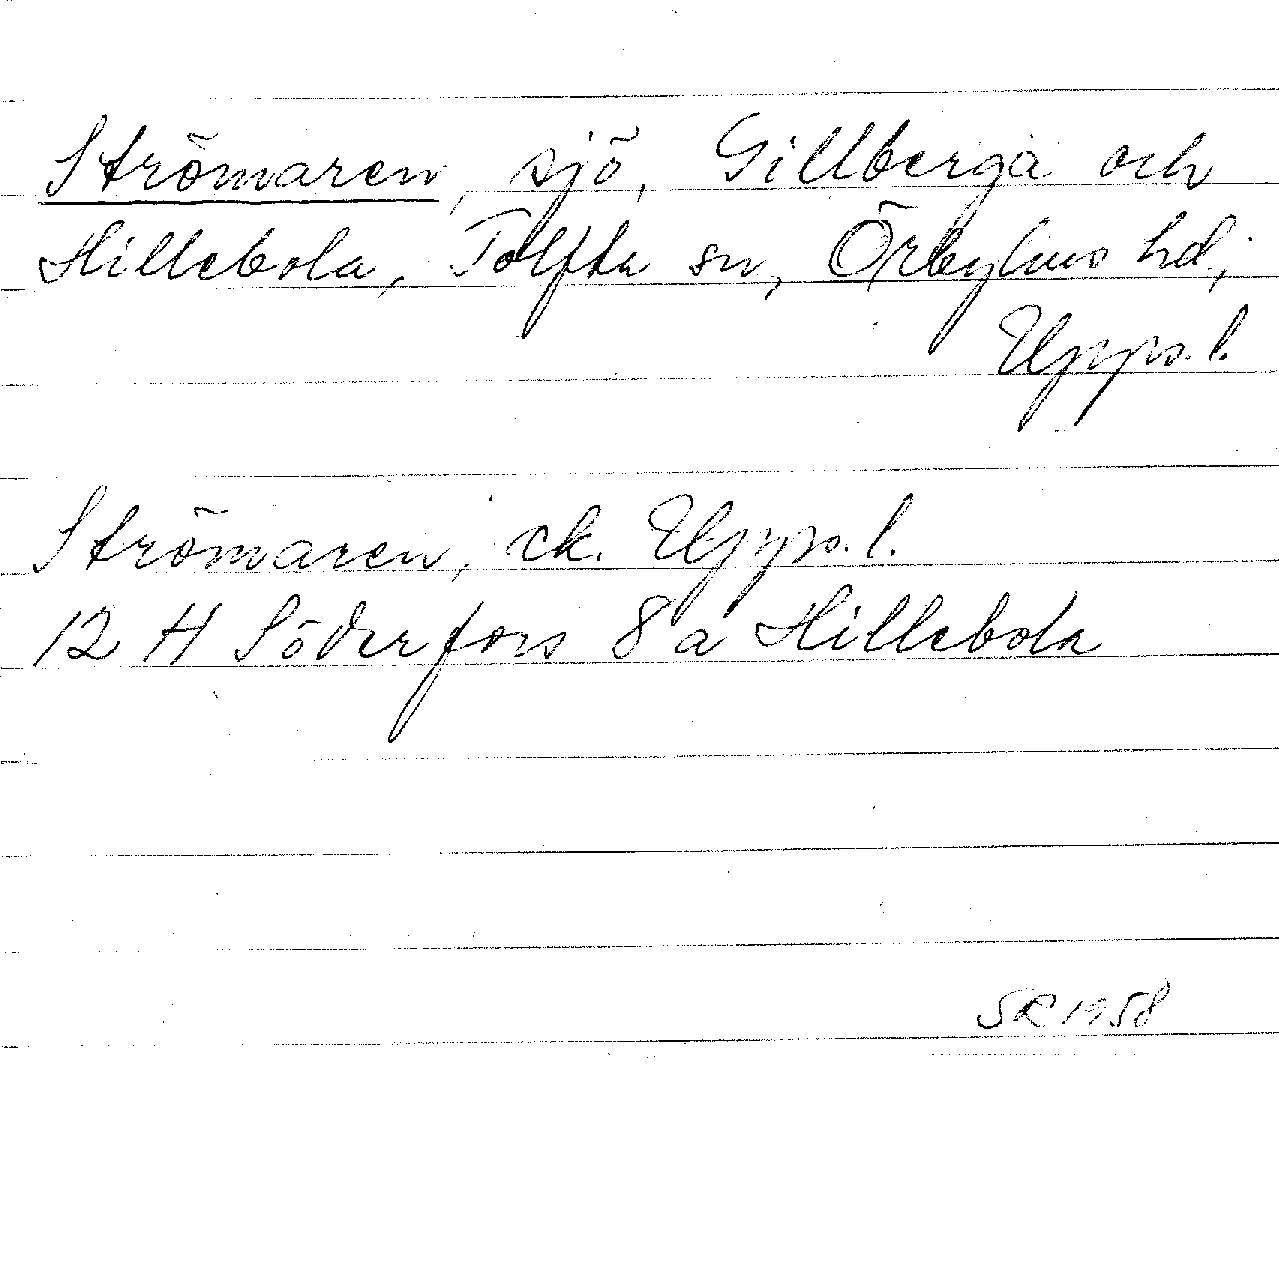 Strömaren, sjö, Gillberga och
Hillebola, Tolfta sn, Örbyhus hd,
Upps. l.
Strömaren, ek. Upps. l.
12 H Söderfors 8 a Hillebola
SR 1958